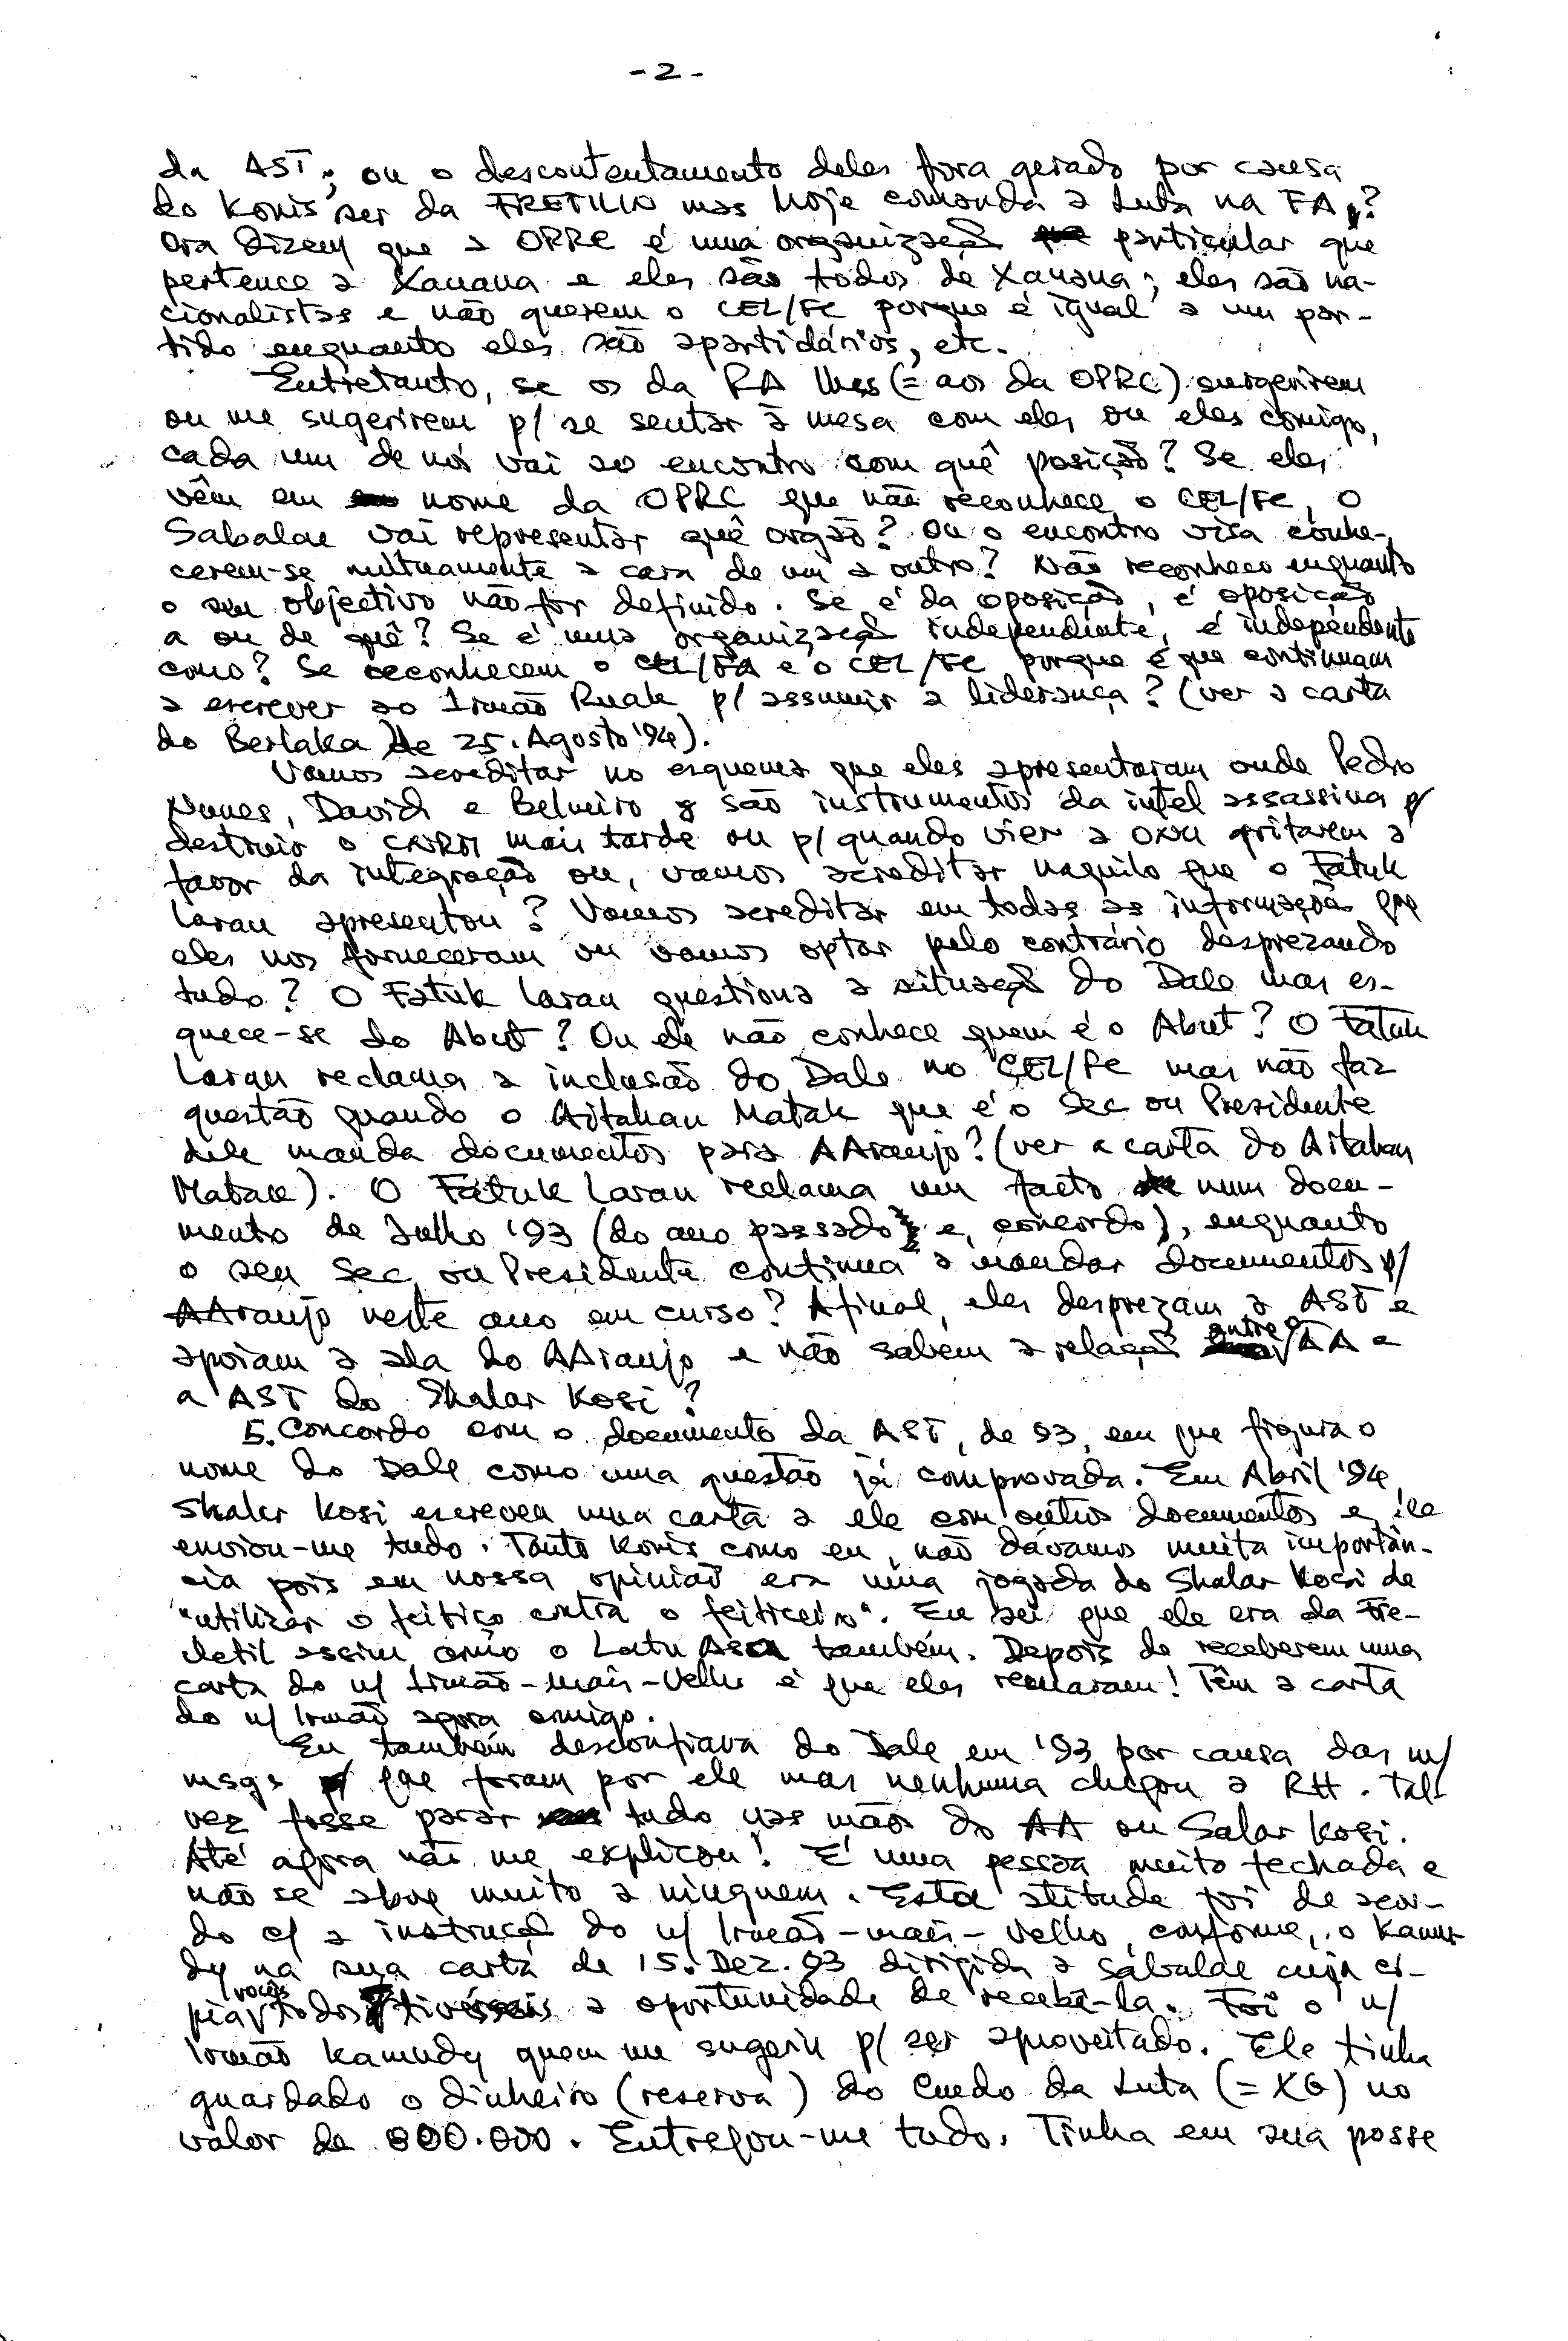 - 2 -
da AST; ou o descontentamento deles fora gerado por causa
do Konis ser da FRETILIN mas hoje comanda a Luta na FA?
Ora dizem que a OPRC é uma organização particular que
pertence a Xanana e eles são todos de Xanana; eles são na-
cionalistas e não querem o CEL/FC porque é igual a um par-
tido enquanto eles são apartidários, etc.
Entretanto, se os da RA lhes (= aos da OPRC) surgerirem
ou me sugerirem p/ se sentar à mesa com eles ou eles comigo,
cada um de nós vai ao encontro com quê posição? Se eles
vêm em nome da OPRC que não reconhece o CEL/FC, o
Sabalae vai representar quê orgão? Ou o encontro visa conhe-
cerem-se mùtuamente a cara de um a outro? Não reconheço enquanto
o seu objectivo não for definido. Se é da oposição, é oposição
a ou de quê? Se é uma organização independente, é independente
como? Se reconhecem o CEL/FA e o CEL/FC porque é que continuam
a escrever ao Irmão Ruak p/ assumir a liderança? (ver a carta
do Berlaka de 25. Agosto '94).
Vamos acreditar no esquema que eles apresentaram onde Pedro
Nunes, David e Belmiro são instrumentos da intel assassina p/
destruir o CNRM mais tarde ou p/ quando vier a ONU gritarem a
favor da integração ou, vamos acreditar naquilo que o Fatuk
Laran apresentou? Vamos acreditar em todas as informações que
eles nos forneceram ou vamos optar pelo contrário desprezando
tudo? O Fatuk Laran questiona a situação do Dale mas es-
quece-se do Abut? Ou ele não conhece quem é o Abut? O Fatuk
Laran reclama a inclusão do Dale no CEL/FC mas não faz
questão quando o Aitahan Matak que é o Sec ou Presidente
dele manda documentos para AAraujo? (ver a carta do Aitahan
Matak). O Fatuk Laran reclama um facto num docu-
mento de Julho '93 (do ano passado e, concordo), enquanto
o seu Sec ou Presidente continua a mandar documentos p/
AAraujo neste ano em curso? Afinal, eles desprezam a AST e
apoiam a ala do AAraujo e não sabem a relação entre o AA e
a AST do Shalar Kosi?
5. Concordo com o documento da AST, de 93, em que figura o
nome do Dale como uma questão já comprovada. Em Abril '94
Shalar Kosi escreveu uma carta a ele com outros documentos e ele
enviou-me tudo. Tanto Konis como eu, não dávamos muita importân-
cia pois em nossa opinião era uma jogada do Shalar Kosi de
"utilizar o feitiço contra o feiticeiro". Eu sei que ele era da Fre-
cletil assim como o Latu Asa também. Depois de receberem uma
carta do n/ Irmão-mais-Velho é que eles recuaram! Têm a carta
do n/ Irmão agora comigo.
Eu também desconfiava do Dale em '93 por causa das m/
msgs que foram por ele mas nenhuma chegou a RH. Tal-
vez fosse parar tudo nas mãos do AA ou Salar Kosi.
Até agora não me explicou! É uma pessoa muito fechada e
não se abre muito a ninguem. Esta atitude foi de acor-
do c/ a instrução do n/ Irmão-mais-Velho, conforme, o Kamu-
dy na sua carta de 15. Dez. 93 dirigida a Sabalae cuja có-
pia vocês todos tivésseis a oportunidade de recebê-la. Foi o n/
Irmão Kamudy quem me sugeriu p/ ser aproveitado. Ele tinha
guardado o dinheiro (reserva) do Cmdo da Luta (= XG) no
valor de 800.000. Entregou-me tudo. Tinha em sua posse